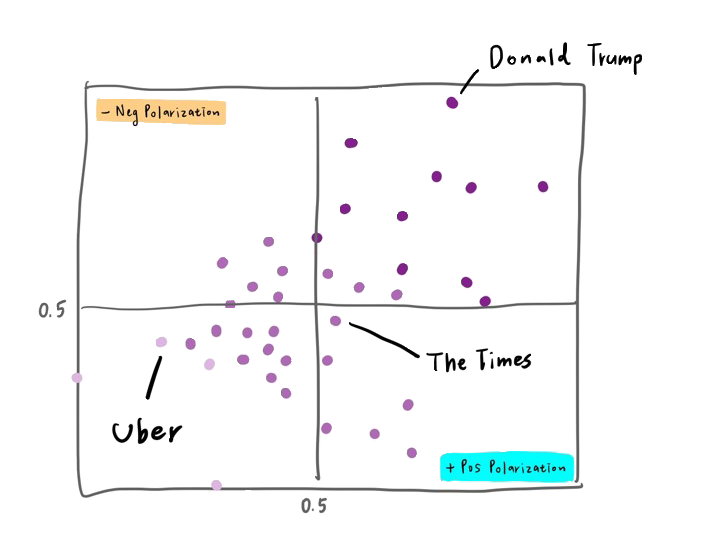 Donald Trump
– Neg Polarization
0.5
The Times
Uber
+ Pos Polarization
0.5